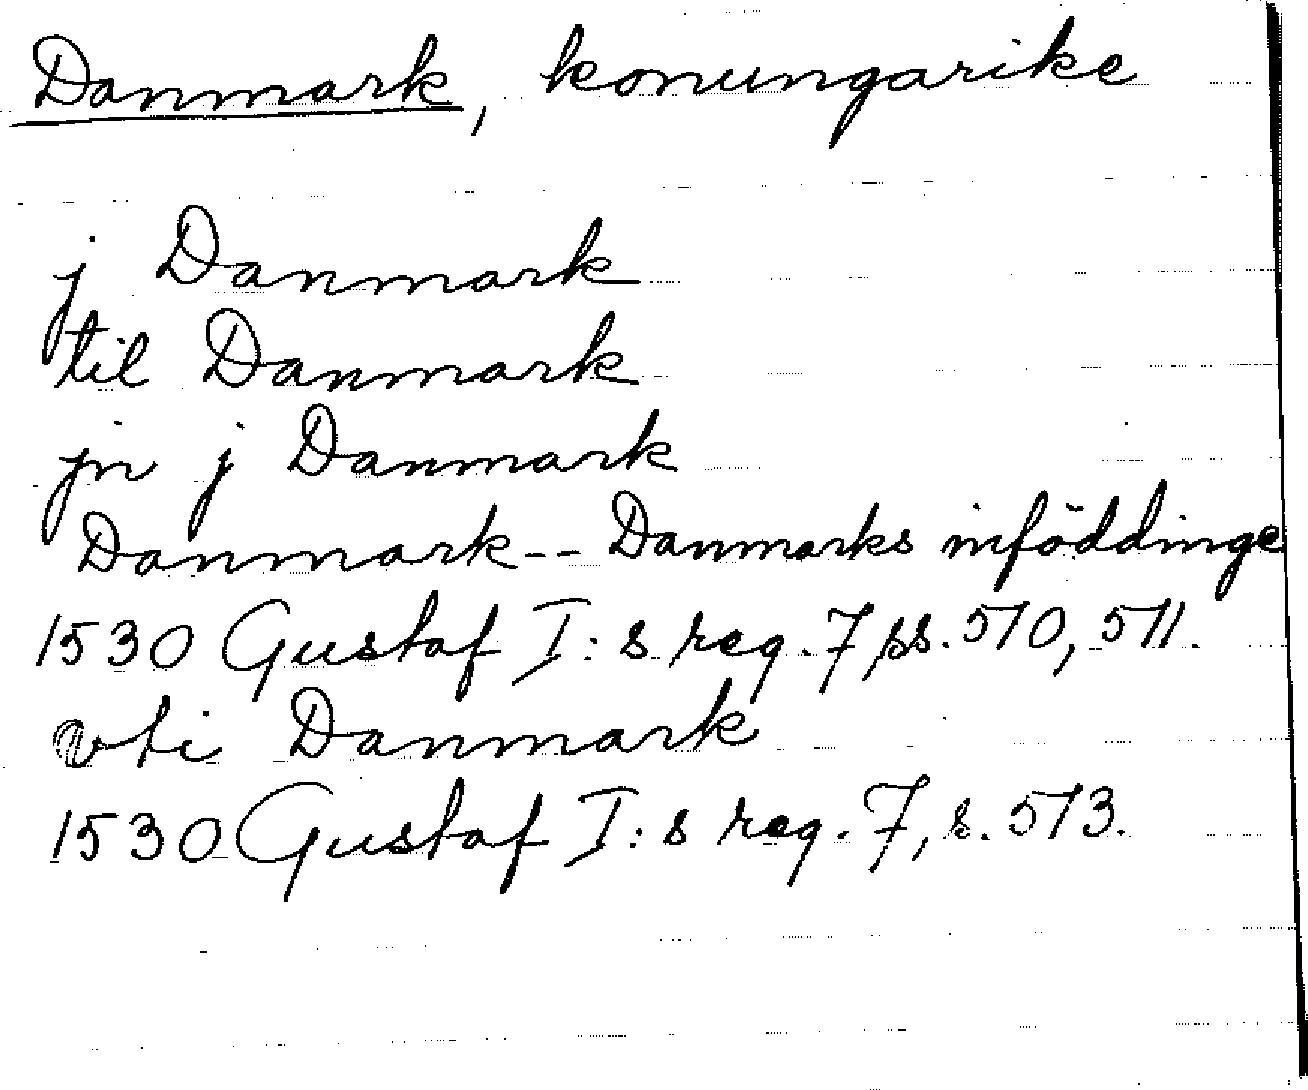 Danmark, konungarike
j Danmark
til Danmark
jn j Danmark
Danmark -- Danmarks inföddinge
1530 Gustaf I:s reg. 7 ss. 510, 511.
vti Danmark
1530 Gustaf I:s reg. 7, s. 513.